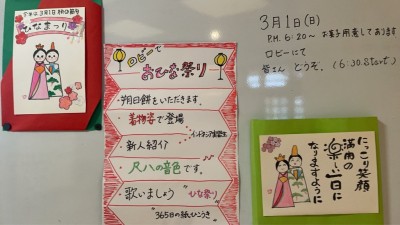 令和4年3月1日 朔日祭
ひなまつり
ロビーで
おひな祭り
・朔日餅をいただきます。
・着物姿で登場
インドネシア実習生
・新人紹介
・尺八の音色です。
・歌いましょう "ひな祭り"
"365日の紙ひこうき
3月1日(日)
P.M. 6:20～ お菓子用意してあります
ロビーにて
皆さん どうぞ。(6:30.Start)
にっこり笑顔
満開の
楽しい一日に
なりますように